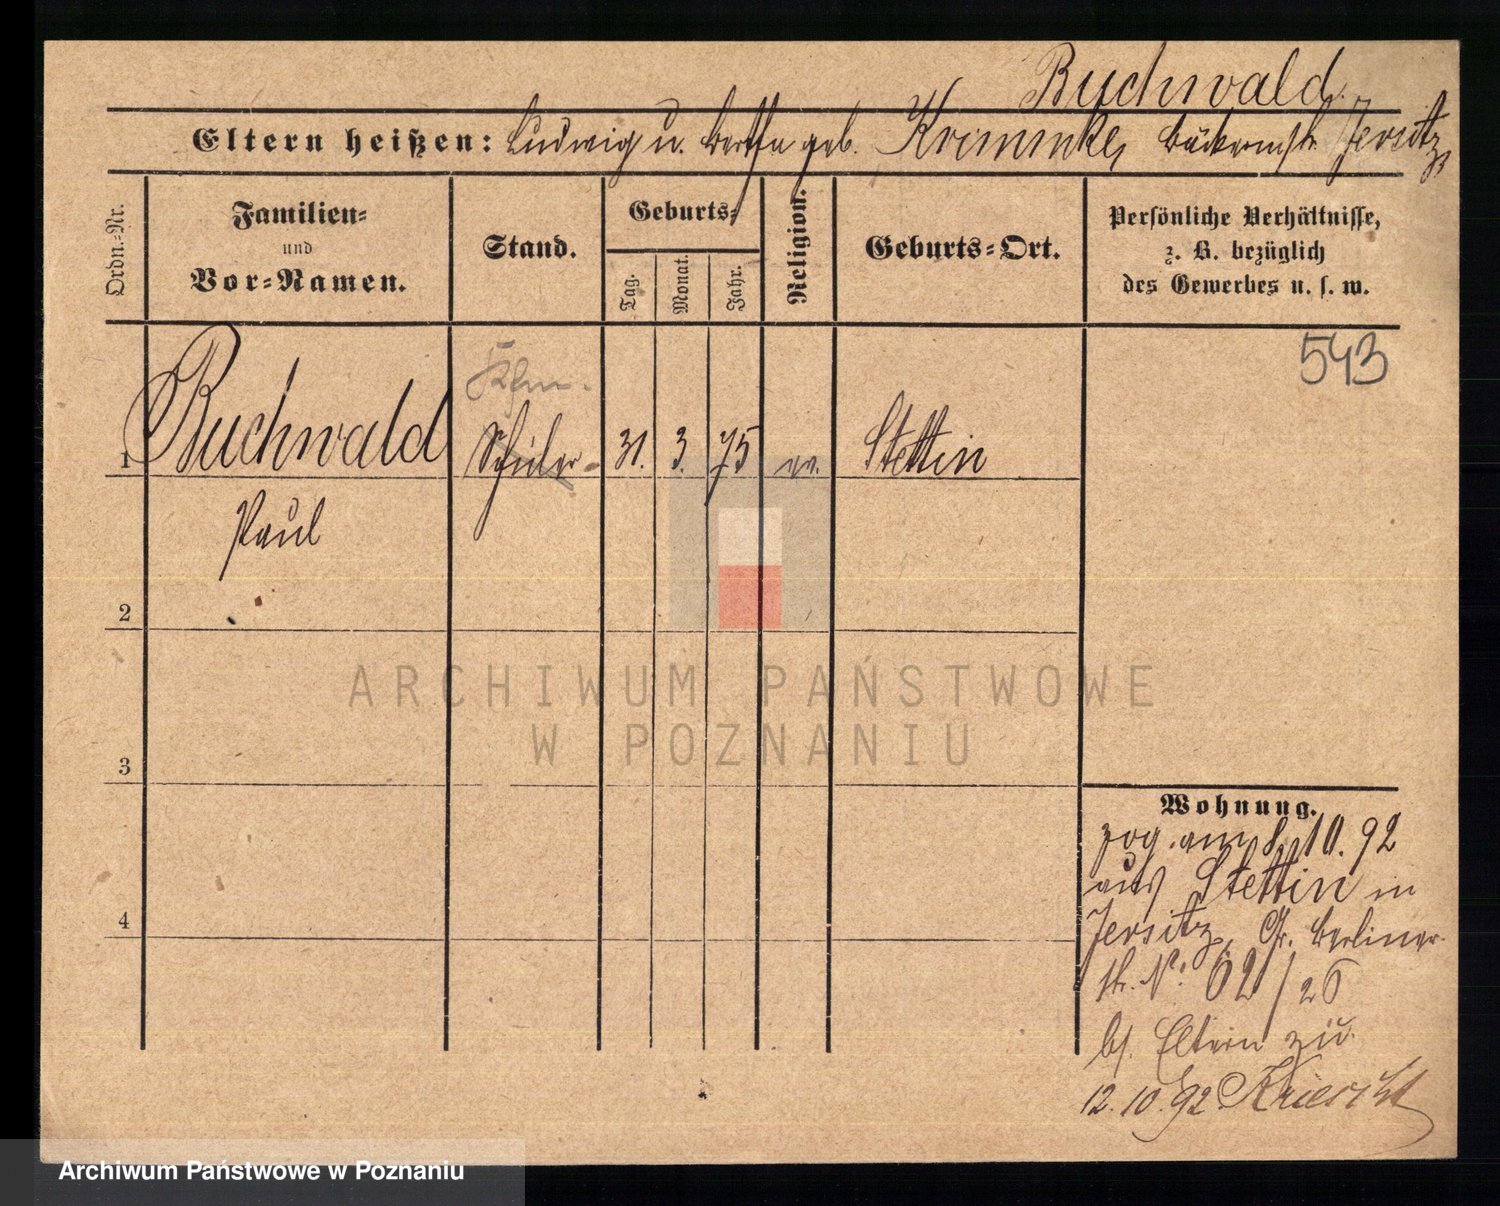 Buchwald.
Eltern heißen: Ludwig u. Bertha geb. Krimmke, Bäckermstr. Jersitz,
Ordn.-Nr.
Familien-
und
Vor-Namen.
Stand.
Geburts-
Tag.
Monat.
Jahr.
Religion.
Geburts-Ort.
Persönliche Verhältnisse,
z. B. bezüglich
des Gewerbes u. s. w.
543
1 Buchwald Schüler 31. 3. 75 ev. Stettin
Paul
2
3
4
Wohnung.
zog. am 8. 10. 92
aus Stettin in
Jersitz, Gr. Berliner-
str. N: 62/26
bs. Eltern zu.
12. 10. 92
ARCHIWUM PAŃSTWOWE
W POZNANIU
Archiwum Państwowe w Poznaniu